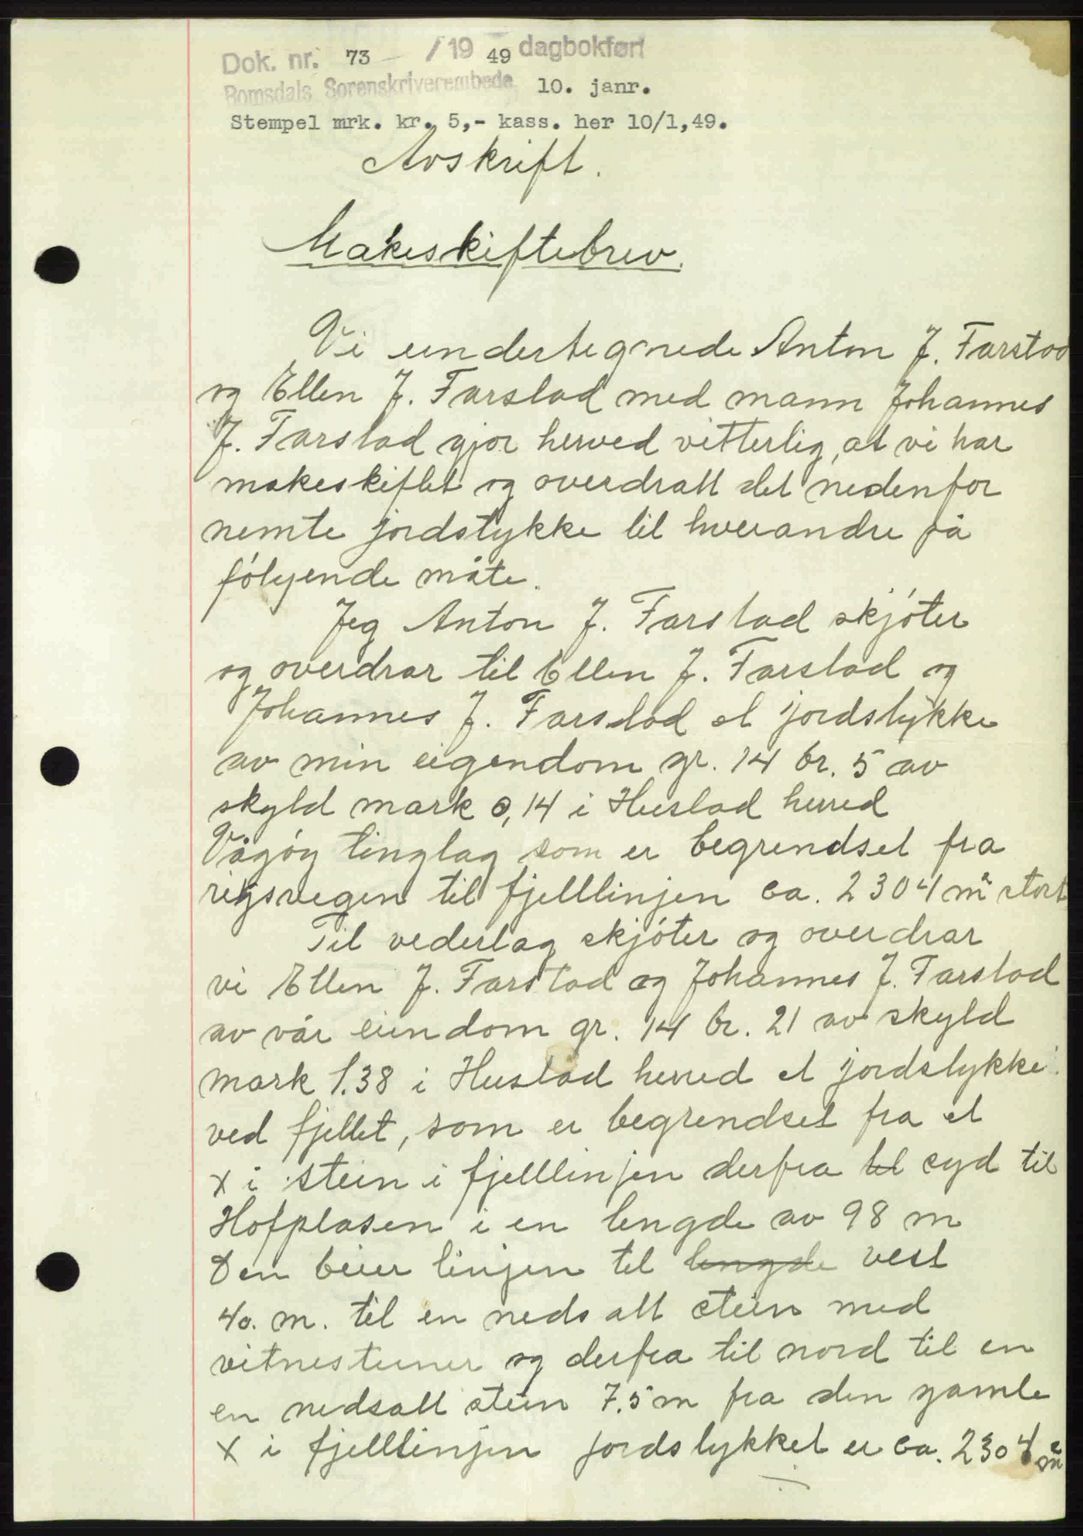 Dok. nr. 73 / 19 49 dagbokført
Romsdals Sorenskriverembede 10. janr.
Stempel mrk. kr. 5,- kass. her 10/1,49.
Avskrift.
Makeskiftebrev.
Vi undertegnede Anton J. Farstad
og Ellen J. Farstad med mann Johannes
J. Farstad gjør herved vitterlig, at vi har
makeskiftet og overdratt det nedenfor
nemte jordstykke til hverandre på
følgende måte.
Jeg Anton J. Farstad skjøter
og overdrar til Ellen J. Farstad og
Johannes J. Farstad et jordstykke
av min eigendom gr. 14 br. 5 av
skyld mark 0,14 i Hustad herred
Vågøy tinglag som er begrendset fra
rigsvegen til fjelllinjen ca. 2304 m² stort
Til vederlag skjøter og overdrar
vi Ellen J. Farstad og Johannes J. Farstad
av vår eiendom gr. 14 br. 21 av skyld
mark 1.38 i Hustad herred et jordstykke
ved fjellet, som er begrendset fra et
x i stein i fjelllinjen derfra til syd til
Hofplasen i en lengde av 98 m
Den beier linjen til lengde vest
40. m. til en nedsatt stein med
vitnesteiner og derfra til nord til en
en nedsatt stein 7.5 m fra den gamle
x i fjelllinjen jordstykket er ca. 2304 m²